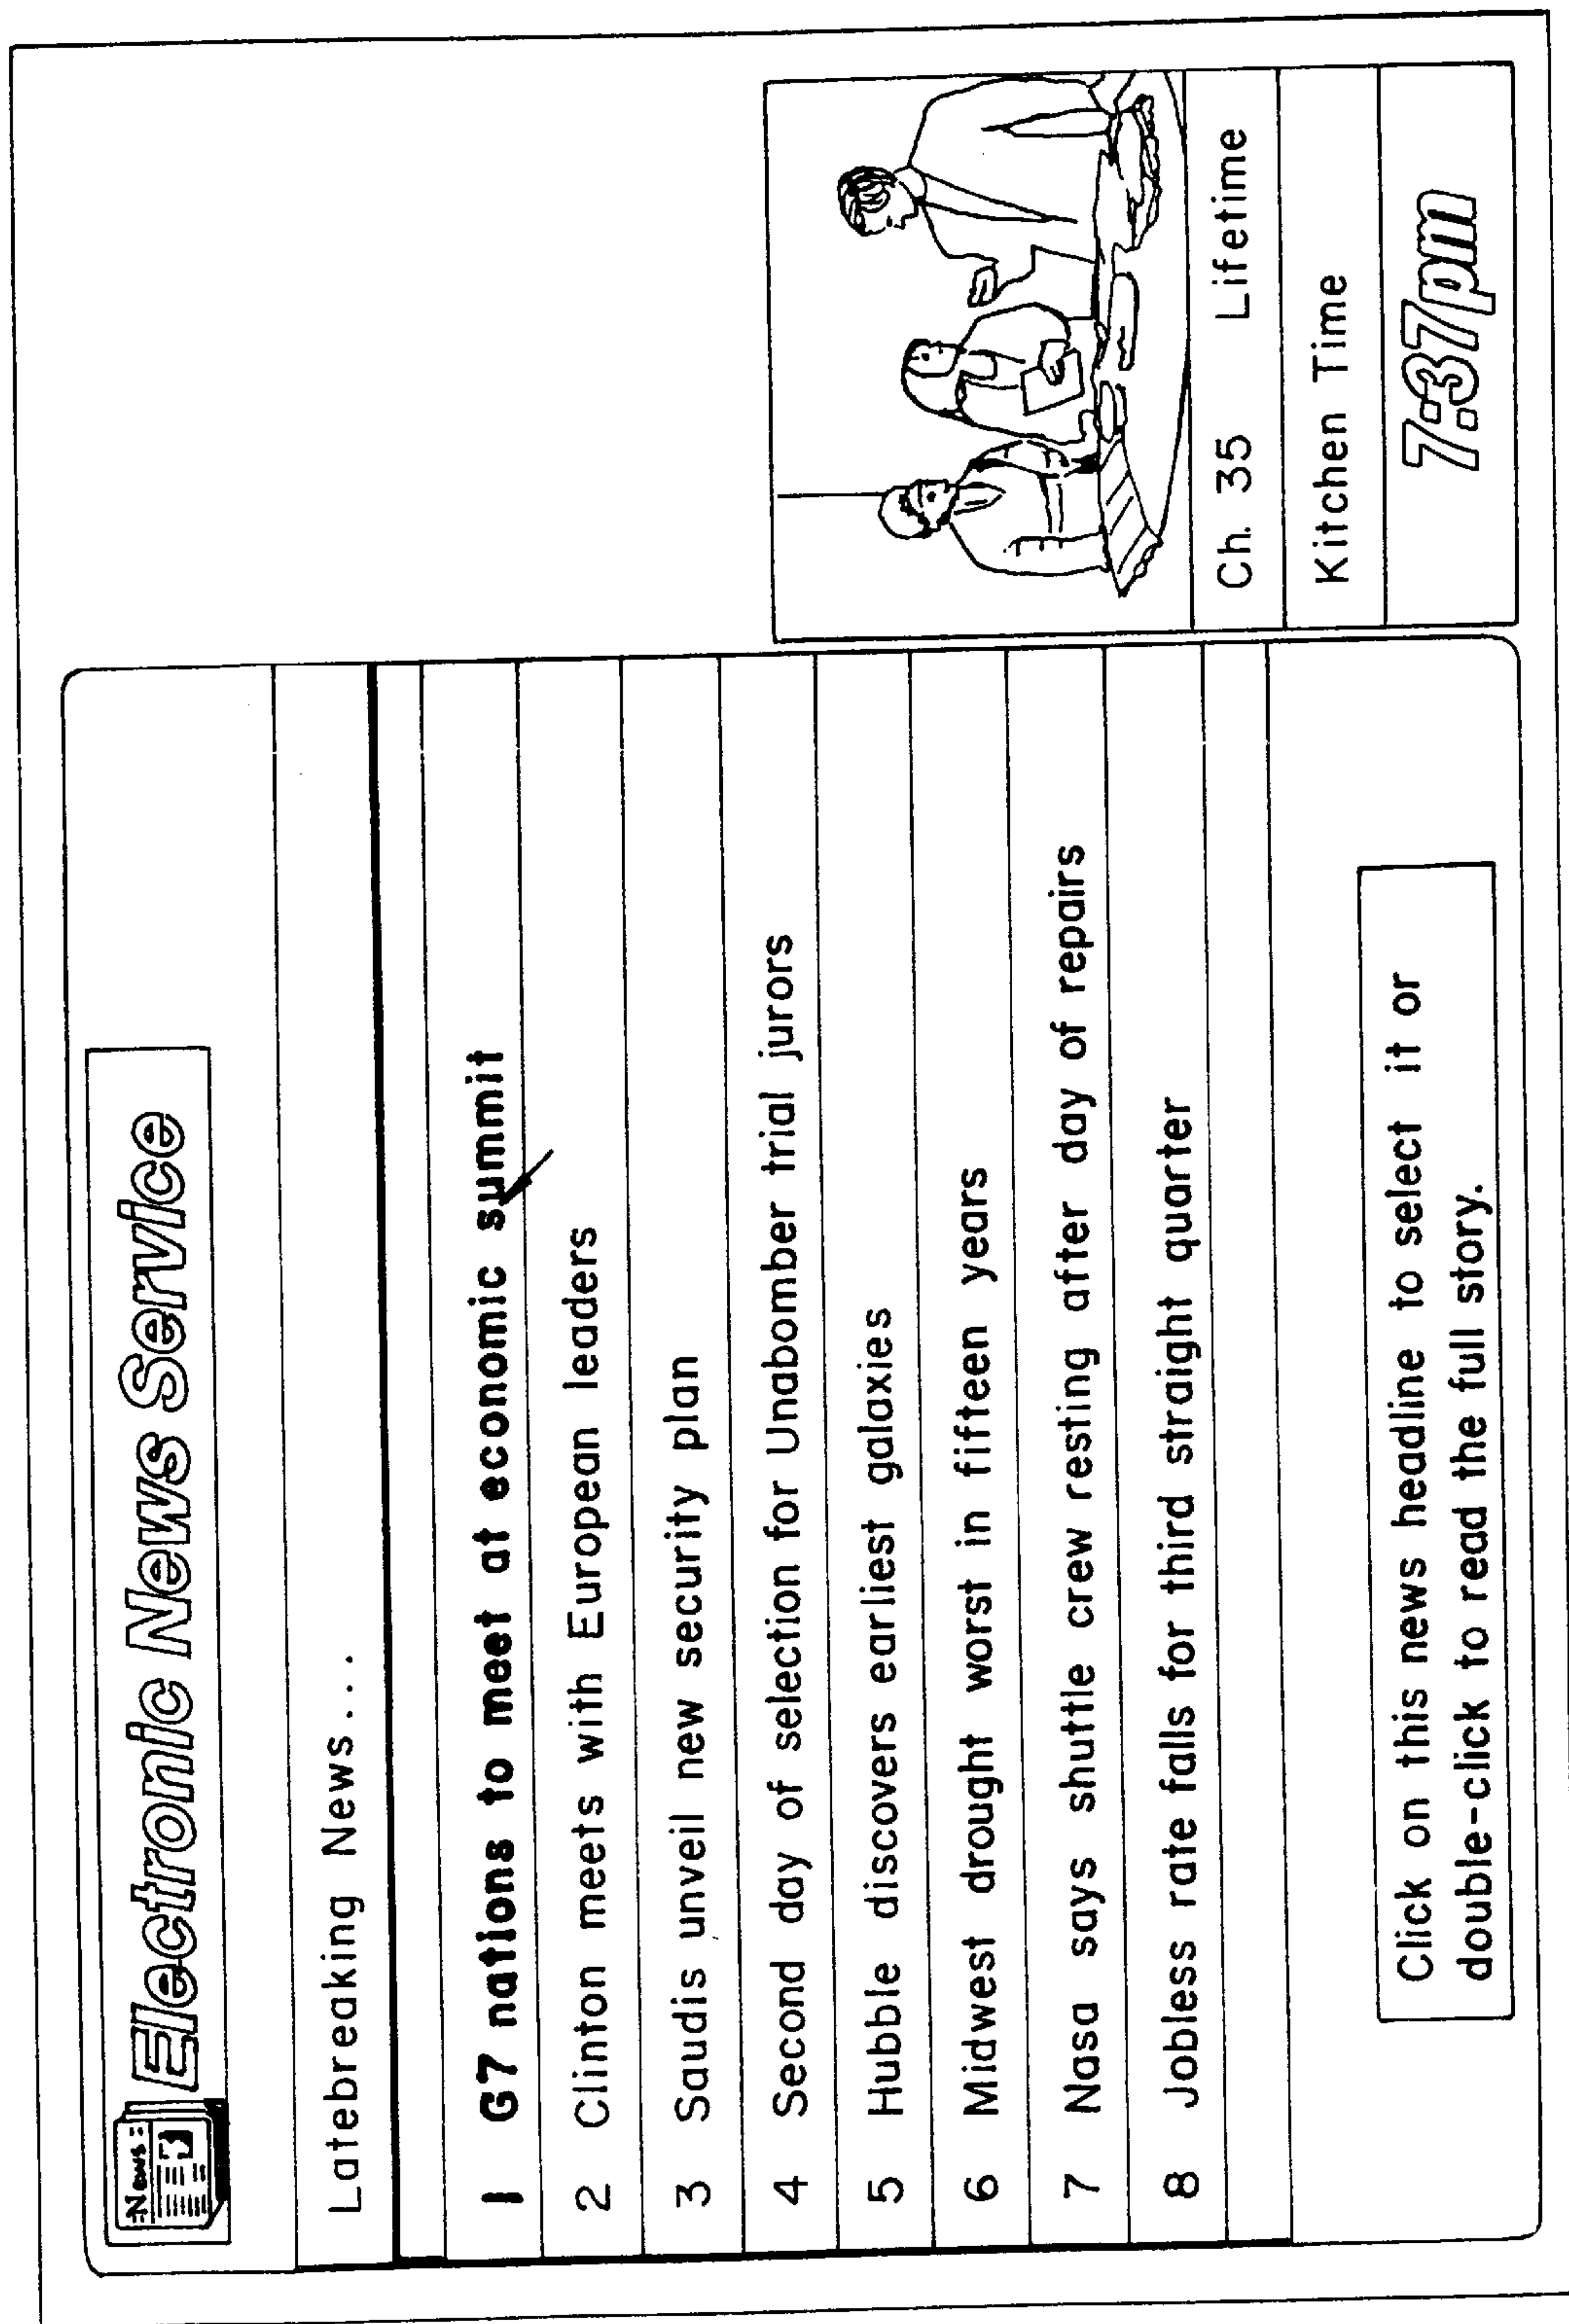 News:
Electronic News Service
Latebreaking News...
1 G7 nations to meet at economic summit
2 Clinton meets with European leaders
3 Saudis unveil new security plan
4 Second day of selection for Unabomber trial jurors
5 Hubble discovers earliest galaxies
6 Midwest drought worst in fifteen years
7 Nasa says shuttle crew resting after day of repairs
8 Jobless rate falls for third straight quarter
Click on this news headline to select it or
double-click to read the full story.
Ch. 35 Lifetime
Kitchen Time
7:37pm